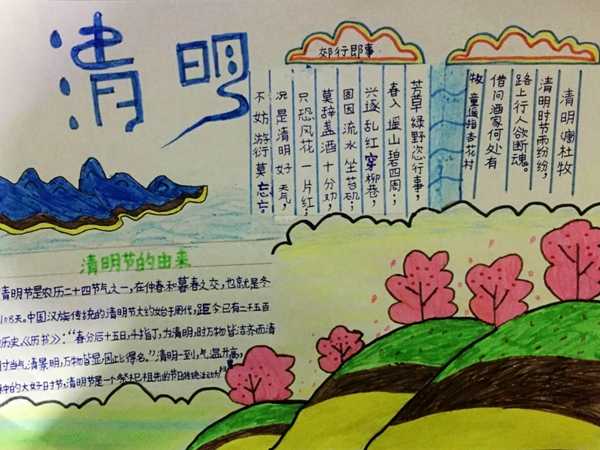 清明
郊行即事
芳草绿野恣行事,
春入遥山碧四周;
兴逐乱红穿柳巷,
困因流水坐苔矶;
莫辞盏酒十分劝,
只恐风花一片红;
况是清明好天气,
不妨游衍莫忘
清明 杜牧
清明时节雨纷纷,
路上行人欲断魂。
借问酒家何处有
牧童遥指杏花村
清明节的由来
清明节是农历二十四节气之一,在仲春和暮春之交,也就是冬
8天。中国汉族传统的清明节大约始于周代,距今已有二千五百
历史《历书》:“春分后十五日,斗指丁,为清明,时万物皆洁齐而清
时当气清景明,万物皆显,因此得名。”清明一到,气温升高,
种的大好时节,清明节是一个祭祀祖先的节日